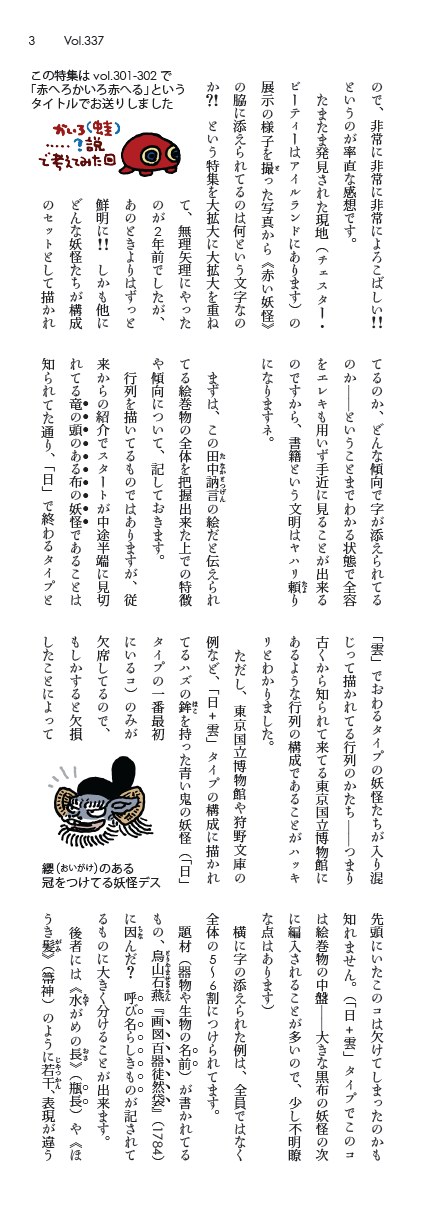 3 Vol.337
ので、非常に非常に非常によろこばしい!!
というのが率直な感想です。
たまたま発見された現地（チェスター・
ビーティーはアイルランドにあります）の
展示の様子を撮った写真から《赤い妖怪》
の脇に添えられてるのは何という文字なの
か?!　という特集を大拡大に大拡大を重ね
て、無理矢理にやった
のが２年前でしたが、
あのときよりはずっと
鮮明に!!　しかも他に
どんな妖怪たちが構成
のセットとして描かれ
この特集は vol.301-302 で
「赤へろかいろ赤へる」という
タイトルでお送りしました
かいろ（蛙）
……？説
で考えてみた回
てるのか、どんな傾向で字が添えられてる
のか――ということまでわかる状態で全容
をエレキも用いず手近に見ることが出来る
のですから、書籍という文明はヤハリ頼り
になりますネ。
まずは、この田中訥言の絵だと伝えられ
てる絵巻物の全体を把握出来た上での特徴
や傾向について、記しておきます。
行列を描いてるものではありますが、従
来からの紹介でスタートが中途半端に見切
れてる竜の頭のある布の妖怪であることは
知られてた通り、「日」で終わるタイプと
「雲」でおわるタイプの妖怪たちが入り混
じって描かれてる行列のかたち――つまり
古くから知られて来てる東京国立博物館に
あるような行列の構成であることがハッキ
リとわかりました。
ただし、東京国立博物館や狩野文庫の
例など、「日＋雲」タイプの構成に描かれ
てるハズの鉾を持った青い鬼の妖怪（「日」
タイプの一番最初
にいるコ）のみが
欠席してるので、
もしかすると欠損
したことによって
纓（おいがけ）のある
冠をつけてる妖怪デス
先頭にいたこのコは欠けてしまったのかも
知れません。（「日＋雲」タイプでこのコ
は絵巻物の中盤――大きな黒布の妖怪の次
に編入されることが多いので、少し不明瞭
な点はあります）
横に字の添えられた例は、全員ではなく
全体の５〜６割につけられてます。
題材（器物や生物の名前）が書かれてる
もの、鳥山石燕『画図百器徒然袋』（1784）
に因んだ？　呼び名らしきものが記されて
るものに大きく分けることが出来ます。
後者には《水がめの長》（瓶長）や《ほ
うき髪》（箒神）のように若干、表現が違う